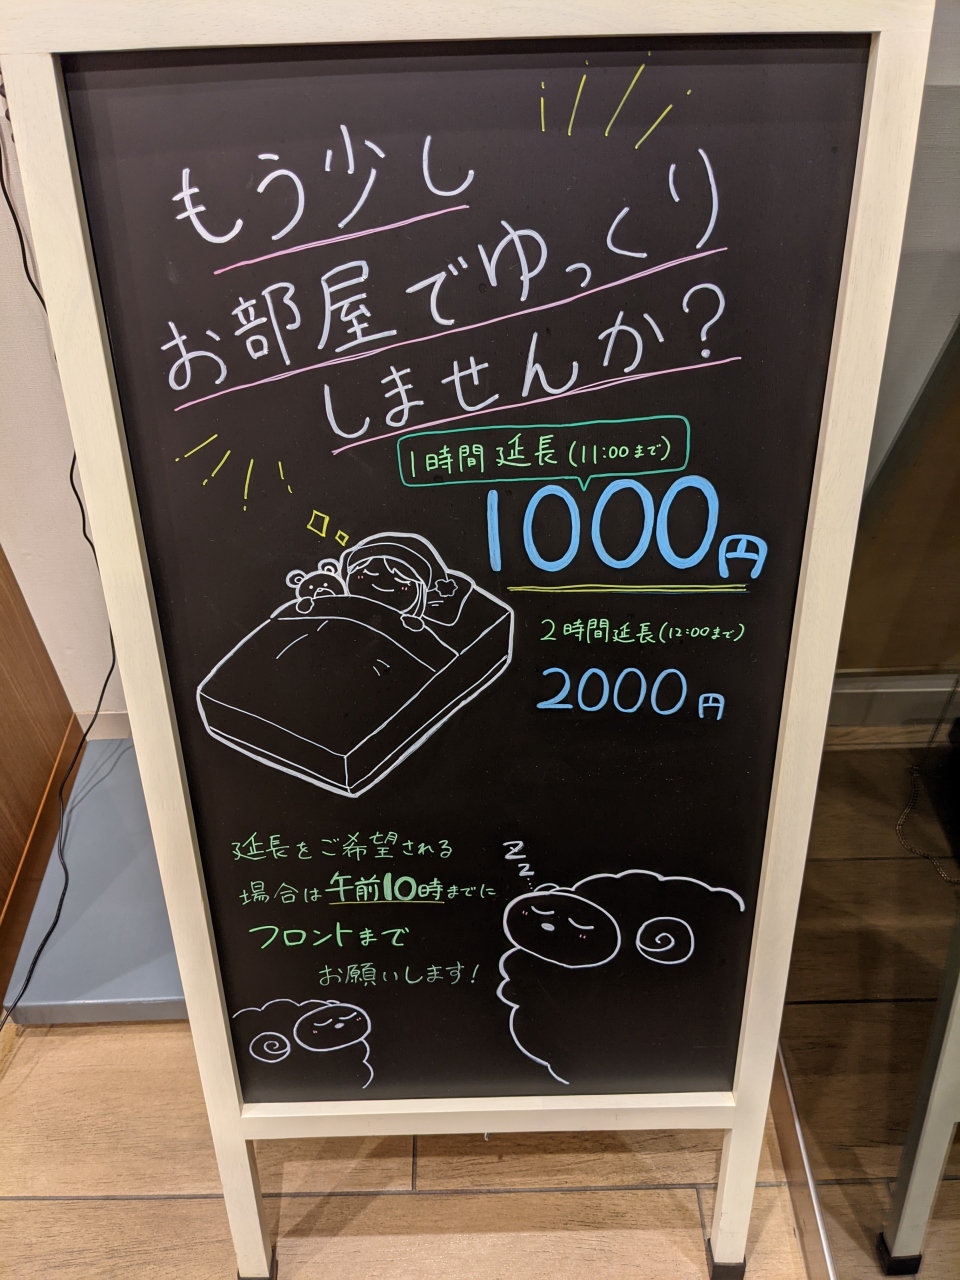 もう少し
お部屋でゆっくり
しませんか?
1時間延長(11:00まで)
1000円
2時間延長(12:00まで)
2000円
延長をご希望される
場合は午前10時までに
フロントまで
お願いします!
Zz..